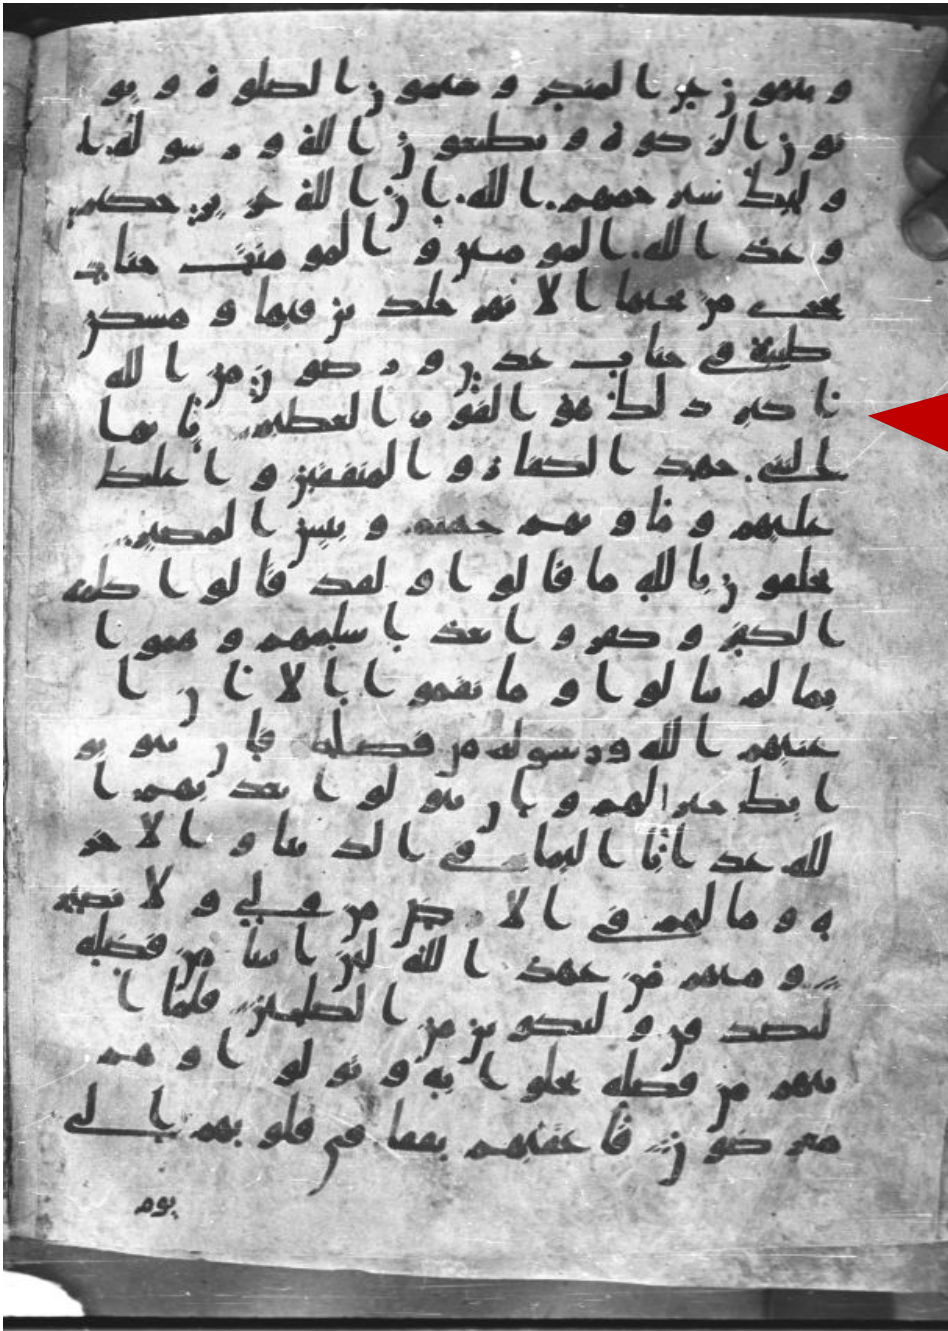 و ينهون عن المنكر و يقيمون الصلوة و يو
تون الزكوة و يطيعون الله و رسوله ا
ولئك سيرحمهم الله ان الله عزيز حكيم
و عد الله المومنين و المومنت جنات
تجري من تحتها الانهر خلدين فيها و مسكن
طيبة في جنات عدن و رضون من الله
اكبر ذلك هو الفوز العظيم يايها
النبي جهد الكفار و المنفقين و اغلظ
عليهم و ماويهم جهنم و بئس المصير
يحلفون بالله ما قالوا و لقد قالوا كلمة
الكفر و كفروا بعد اسلمهم و هموا
بما لم ينالوا و ما نقموا الا ان ا
غنيهم الله و رسوله من فضله فان يتوبو
ا يك خيرا لهم و ان يتولوا يعذبهم ا
لله عذابا اليما في الدنيا و الاخر
ة و ما لهم في الارض من ولي و لا نصير
و منهم من عهد الله لئن اتينا من فضله
لنصدقن و لنكونن من الصلحين فلما ا
تيهم من فضله بخلوا به و تولوا و هم
معرضون فاعقبهم نفاقا في قلوبهم الى
يوم